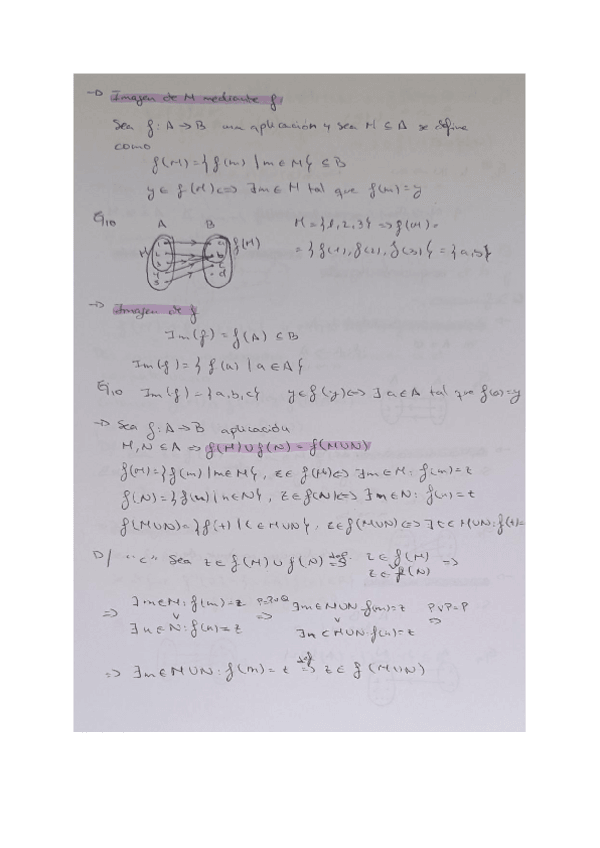 → Imagen de M mediante f
Sea f: A → B una aplicación y sea M ⊆ A se define
como
f(M) = {f(m) | m ∈ M} ⊆ B
y ∈ f(M) ⇔ ∃m ∈ M tal que f(m) = y
Ejo A B M = {1, 2, 3} ⇒ f(M) =
M 1 2 3 4 5 b c d f(M) = {f(1), f(2), f(3)} = {a, b}
→ Imagen de f
Im(f) = f(A) ⊆ B
Im(f) = {f(a) | a ∈ A}
Ejo Im(f) = {a, b, c} y ∈ f(y) ⇔ ∃ a ∈ A tal que f(a) = y
→ Sea f: A → B aplicación
M, N ⊆ A ⇒ f(M) ∪ f(N) = f(M∪N)
f(M) = {f(m) | m ∈ M}, z ∈ f(M) ⇔ ∃m ∈ M: f(m) = z
f(N) = {f(n) | n ∈ N}, z ∈ f(N) ⇔ ∃n ∈ N: f(n) = z
f(M∪N) = {f(t) | t ∈ M∪N}, z ∈ f(M∪N) ⇔ ∃ t ∈ M∪N: f(t) =
D/ "⊂" Sea z ∈ f(M) ∪ f(N) def⇒ z ∈ f(M) ∨ z ∈ f(N) ⇒
⇒ ∃m ∈ M: f(m) = z ∨ ∃n ∈ N: f(n) = z P⇒P∨Q ⇒ ∃m ∈ M∪N: f(m) = z ∨ ∃n ∈ M∪N: f(n) = z P∨P=P ⇒
⇒ ∃m ∈ M∪N: f(m) = z def⇒ z ∈ f(M∪N)